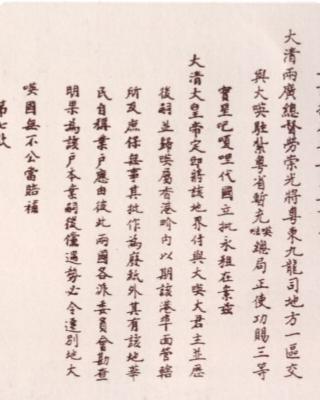 大清兩廣總督勞崇光將粵東九龍司地方一區交
與大㗲駐紥粵省暫充㗲𠸄總局正使功賜三等
寶星吧嗄哩代國立批永租在案茲
大清大皇帝定即將該地界付與大㗲大君主並歷
後嗣並歸㗲屬香港界內以期該港埠面管轄
所及庶保無事其批作爲廢紙外其有該地華
民自稱業戶應由彼此兩國各派委員會勘查
明果爲該戶本業嗣後倘遇勢必令遷別地大
㗲國無不公當賠補
第七款